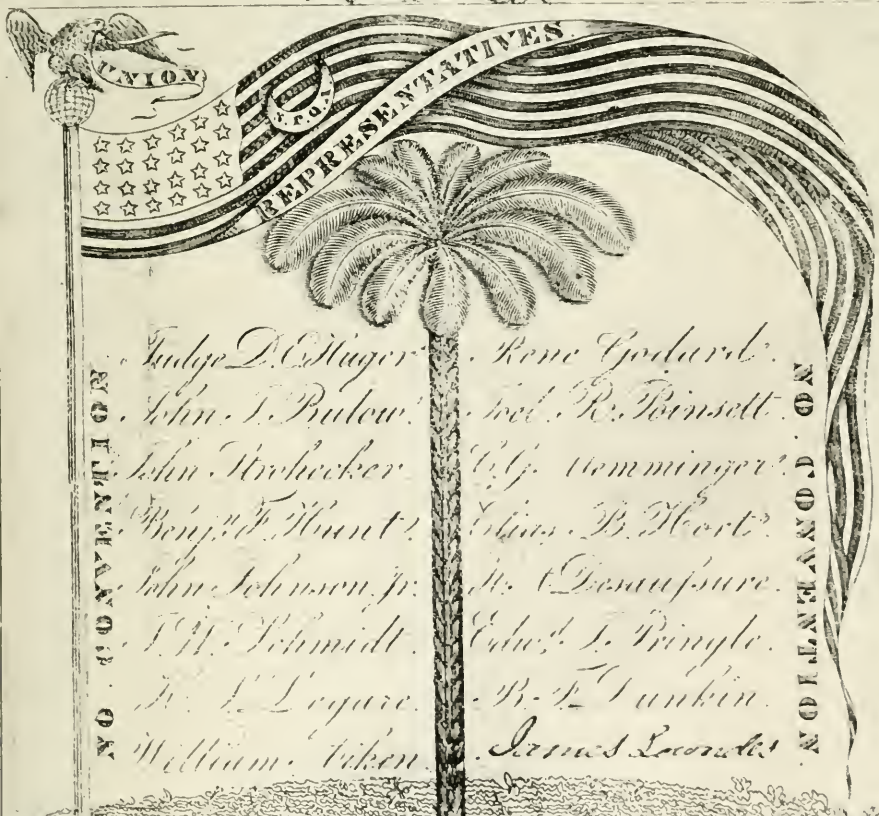 UNION
REPRESENTATIVES
NO CONVENTION
Judge D. E. Huger.
John J. Bulow.
John Strohecker.
Benjn. F. Hunt.
John Johnson, Jr.
J. W. Schmidt.
Legare.
William Aiken.
Rene Godard.
Joel R. Poinsett.
C. G. Memminger.
Elias B. Hort.
Desaussure.
Edwd. J. Pringle.
B. F. Dunkin.
James Lowndes
NO CONVENTION